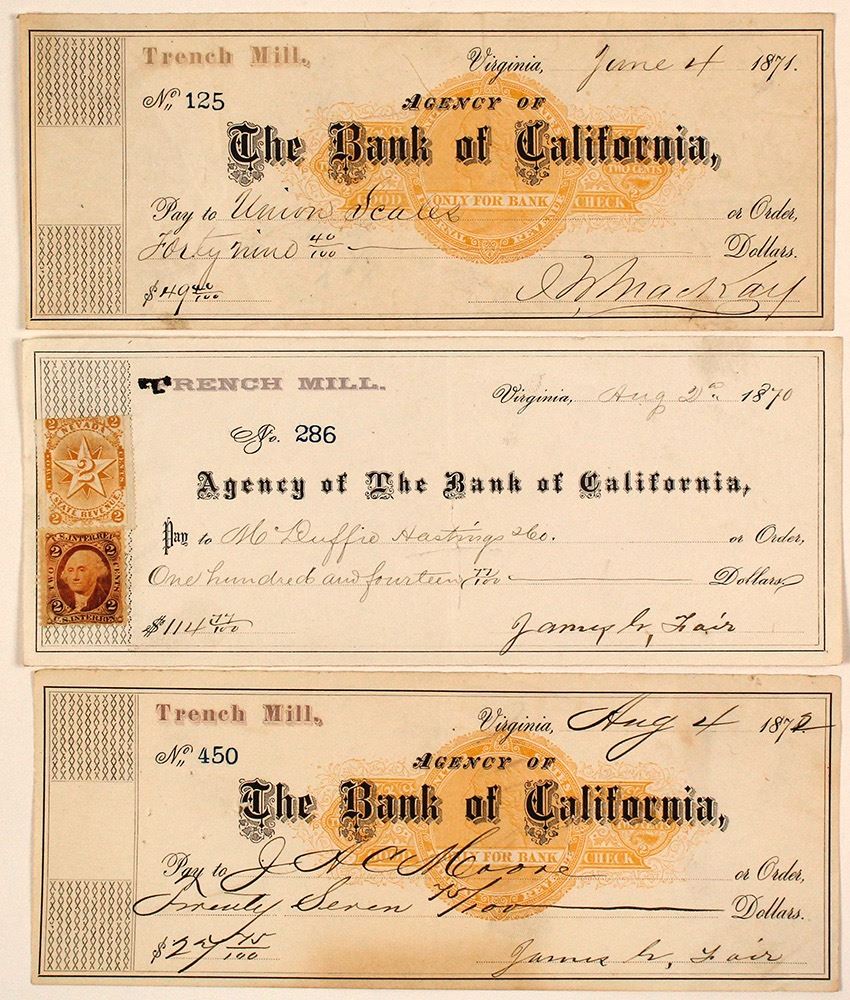 Trench Mill,
Virginia, June 4 1871.
No. 125
AGENCY OF
The Bank of California,
TWO CENTS
GOOD ONLY FOR BANK CHECK
INTERNAL REVENUE
Pay to Union Scales or Order,
Forty nine 40/100 Dollars.
$49 40/100
J W Mackay
TRENCH MILL.
Virginia, Aug 2nd 1870
No. 286
2 NEVADA 2
TWO 2 CENTS
STATE REVENUE
2 2
Agency of The Bank of California,
Pay to McDuffie Hastings & Co. or Order,
U.S. INTER. REV.
2 2
TWO CENTS
2 2
U.S. INTER. REV.
One hundred and fourteen 77/100 Dollars
$114 77/100
James G. Fair
Trench Mill,
Virginia, Aug 4 1872
No. 450
AGENCY OF
The Bank of California,
GOOD ONLY FOR BANK CHECK
Pay to J H C Moore or Order,
Twenty Seven 75/100 Dollars.
$27 75/100
James G. Fair